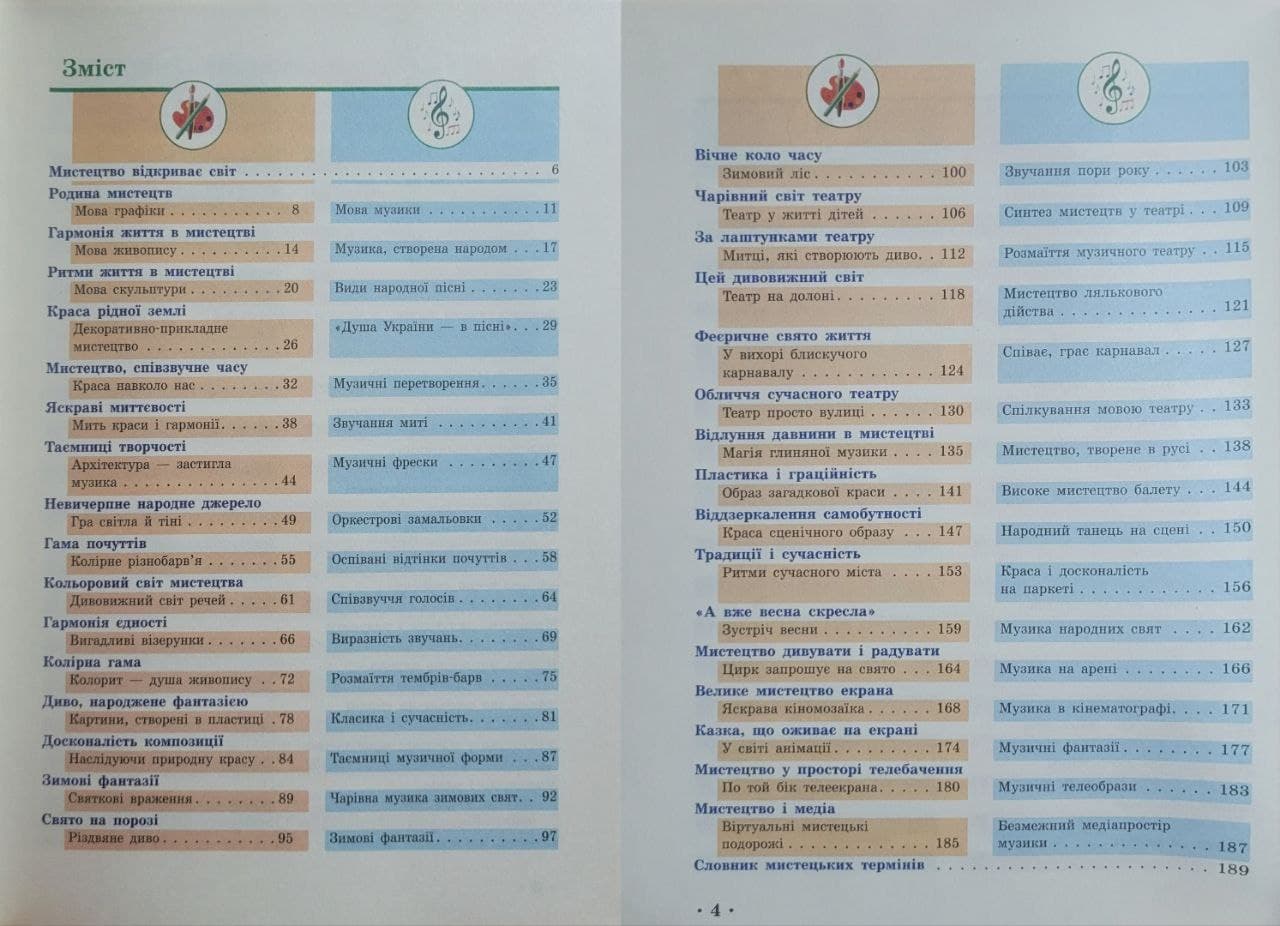 Зміст
Мистецтво відкриває світ . . . . . . . . . . . . . . . . . . . . . . . . . . . . 6
Родина мистецтв
Мова графіки . . . . . . . . . . 8 Мова музики . . . . . . . . . . 11
Гармонія життя в мистецтві
Мова живопису . . . . . . . . . 14 Музика, створена народом . . . 17
Ритми життя в мистецтві
Мова скульптури . . . . . . . . 20 Види народної пісні . . . . . . . 23
Краса рідної землі
Декоративно-прикладне «Душа України — в пісні» . . . 29
мистецтво . . . . . . . . . . . . 26
Мистецтво, співзвучне часу
Краса навколо нас . . . . . . . . 32 Музичні перетворення . . . . . . 35
Яскраві миттєвості
Мить краси і гармонії . . . . . . 38 Звучання миті . . . . . . . . . 41
Таємниці творчості
Архітектура — застигла Музичні фрески . . . . . . . . 47
музика . . . . . . . . . . . . . . 44
Невичерпне народне джерело
Гра світла й тіні . . . . . . . . . 49 Оркестрові замальовки . . . . . 52
Гама почуттів
Колірне різнобарв’я . . . . . . . 55 Оспівані відтінки почуттів . . . 58
Кольоровий світ мистецтва
Дивовижний світ речей . . . . . 61 Співзвуччя голосів . . . . . . . . 64
Гармонія єдності
Вигадливі візерунки . . . . . . . 66 Виразність звучань . . . . . . . . 69
Колірна гама
Колорит — душа живопису . . 72 Розмаїття тембрів-барв . . . . . 75
Диво, народжене фантазією
Картини, створені в пластиці . 78 Класика і сучасність . . . . . . . 81
Досконалість композиції
Наслідуючи природну красу . . 84 Таємниці музичної форми . . . 87
Зимові фантазії
Святкові враження . . . . . . . . 89 Чарівна музика зимових свят . . 92
Свято на порозі
Різдвяне диво . . . . . . . . . . . 95 Зимові фантазії . . . . . . . . . . 97
Вічне коло часу
Зимовий ліс . . . . . . . . . . . 100 Звучання пори року . . . . . . 103
Чарівний світ театру
Театр у житті дітей . . . . . . 106 Синтез мистецтв у театрі . . . 109
За лаштунками театру
Митці, які створюють диво . . 112 Розмаїття музичного театру . . 115
Цей дивовижний світ
Театр на долоні . . . . . . . . . 118 Мистецтво лялькового
дійства . . . . . . . . . . . . . 121
Феєричне свято життя
У вихорі блискучого Співає, грає карнавал . . . . . 127
карнавалу . . . . . . . . . . . . 124
Обличчя сучасного театру
Театр просто вулиці . . . . . . 130 Спілкування мовою театру . . 133
Відлуння давнини в мистецтві
Магія глиняної музики . . . . 135 Мистецтво, творене в русі . . 138
Пластика і граційність
Образ загадкової краси . . . . 141 Високе мистецтво балету . . . 144
Віддзеркалення самобутності
Краса сценічного образу . . . 147 Народний танець на сцені . . 150
Традиції і сучасність
Ритми сучасного міста . . . . 153 Краса і досконалість
на паркеті . . . . . . . . . . . . 156
«А вже весна скресла»
Зустріч весни . . . . . . . . . . 159 Музика народних свят . . . . 162
Мистецтво дивувати і радувати
Цирк запрошує на свято . . . . 164 Музика на арені . . . . . . . . 166
Велике мистецтво екрана
Яскрава кіномозаїка . . . . . . 168 Музика в кінематографі . . . . 171
Казка, що оживає на екрані
У світі анімації . . . . . . . . . 174 Музичні фантазії . . . . . . . . 177
Мистецтво у просторі телебачення
По той бік телеекрана . . . . . 180 Музичні телеобрази . . . . . . 183
Мистецтво і медіа
Віртуальні мистецькі Безмежний медіапростір
подорожі . . . . . . . . . . . . . 185 музики . . . . . . . . . . . . . . 187
Словник мистецьких термінів . . . . . . . . . . . . . . . . . . . . . . . . 189
• 4 •